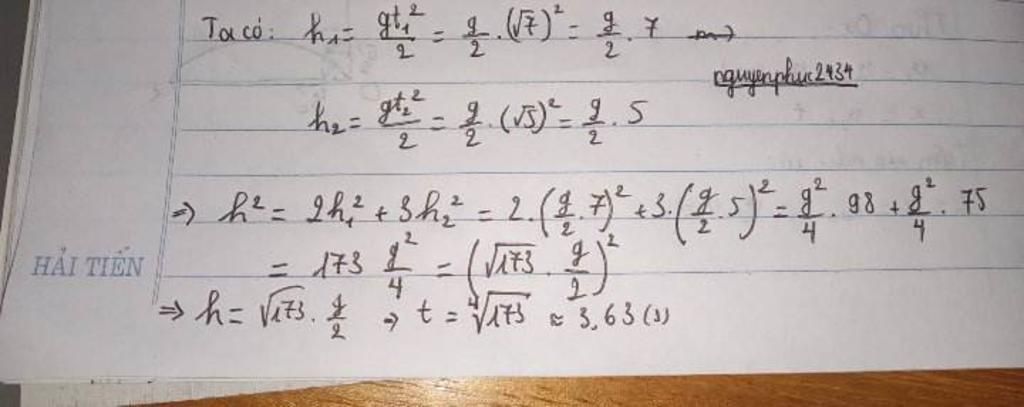 Ta có: h₁ = gt₁²/2 = g/2 . (√7)² = g/2 . 7
nguyenphuc2434
h₂ = gt₂²/2 = g/2 . (√5)² = g/2 . 5
⇒ h² = 2h₁² + 3h₂² = 2.(g/2 . 7)² + 3.(g/2 . 5)² = g²/4 . 98 + g²/4 . 75
HẢI TIẾN
= 173 g²/4 = (√173 . g/2)²
⇒ h = √173 . g/2 → t = ∜173 ≈ 3,63 (s)